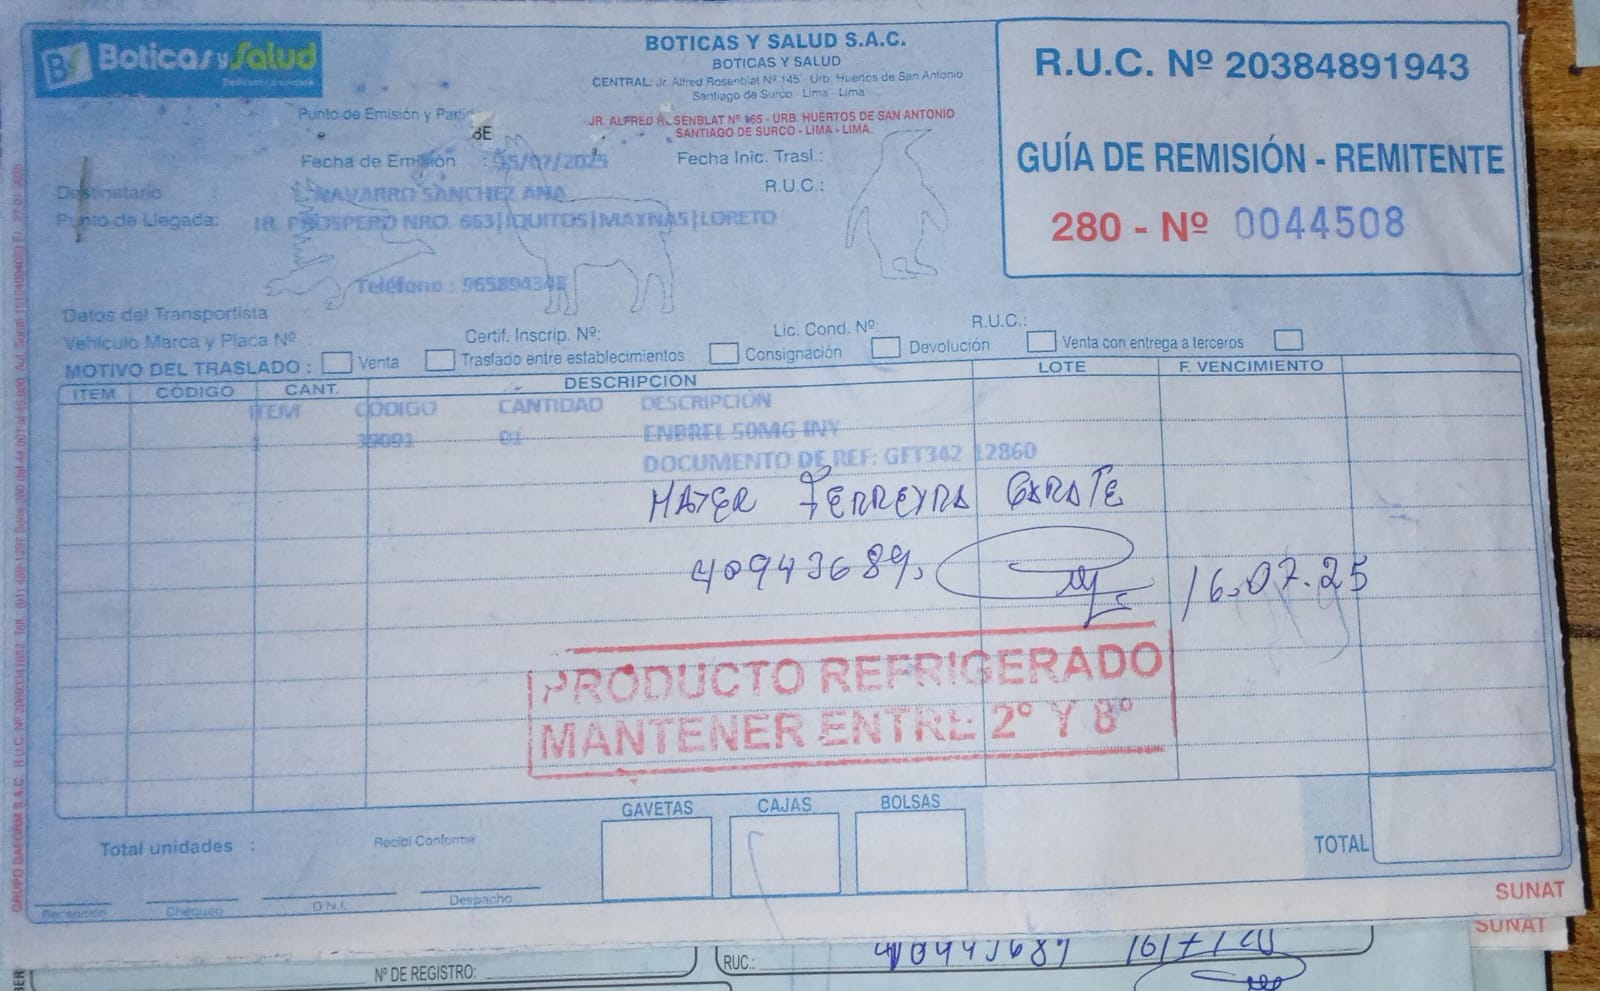 Boticas y Salud
BOTICAS Y SALUD S.A.C.
BOTICAS Y SALUD
CENTRAL: Jr. Alfred Rosenblat Nº 145 - Urb. Huertos de San Antonio
Santiago de Surco - Lima - Lima
JR. ALFRED ROSENBLAT Nº 165 - URB. HUERTOS DE SAN ANTONIO
SANTIAGO DE SURCO - LIMA - LIMA.
R.U.C. Nº 20384891943
GUÍA DE REMISIÓN - REMITENTE
280 - Nº 0044508
Punto de Emisión y Parti
Fecha de Emisión : /07/2025
Fecha Inic. Trasl.:
Destinatario NAVARRO SANCHEZ ANA
R.U.C.:
Punto de Llegada: JR. PROSPERO NRO. 663|IQUITOS|MAYNAS|LORETO
Teléfono :
Datos del Transportista
Vehículo Marca y Placa Nº :
Certif. Inscrip. Nº:
Lic. Cond. Nº:
R.U.C.:
MOTIVO DEL TRASLADO : Venta Traslado entre establecimientos Consignación Devolución Venta con entrega a terceros
ITEM CÓDIGO CANT. DESCRIPCIÓN LOTE F. VENCIMIENTO
ITEM CODIGO CANTIDAD DESCRIPCION
1 01 ENBREL 50MG INY
DOCUMENTO DE REF: GFT342 12860
MAYER FERREYRA GARATE
40943689. 16.07.25
PRODUCTO REFRIGERADO
MANTENER ENTRE 2° Y 8°
GAVETAS CAJAS BOLSAS
Total unidades :
Recibí Conforme
TOTAL
Recepción Chequeo D.N.I. Despacho
SUNAT
SUNAT
Nº DE REGISTRO:
RUC.: